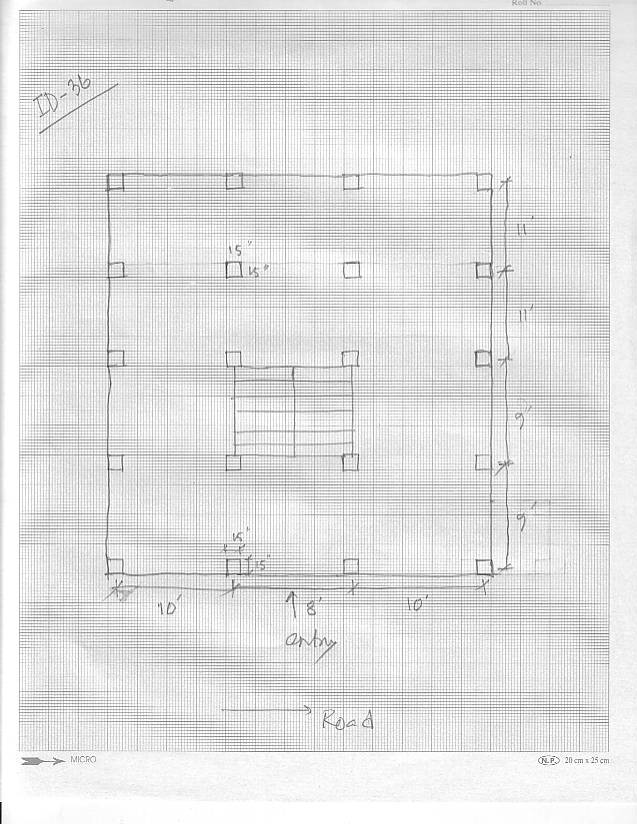 Roll No.
ID-36
11'
15"
15"
11'
9'
15'
15'
9'
10'
8'
10'
entry
Road
MICRO
N.P. 20 cm x 25 cm